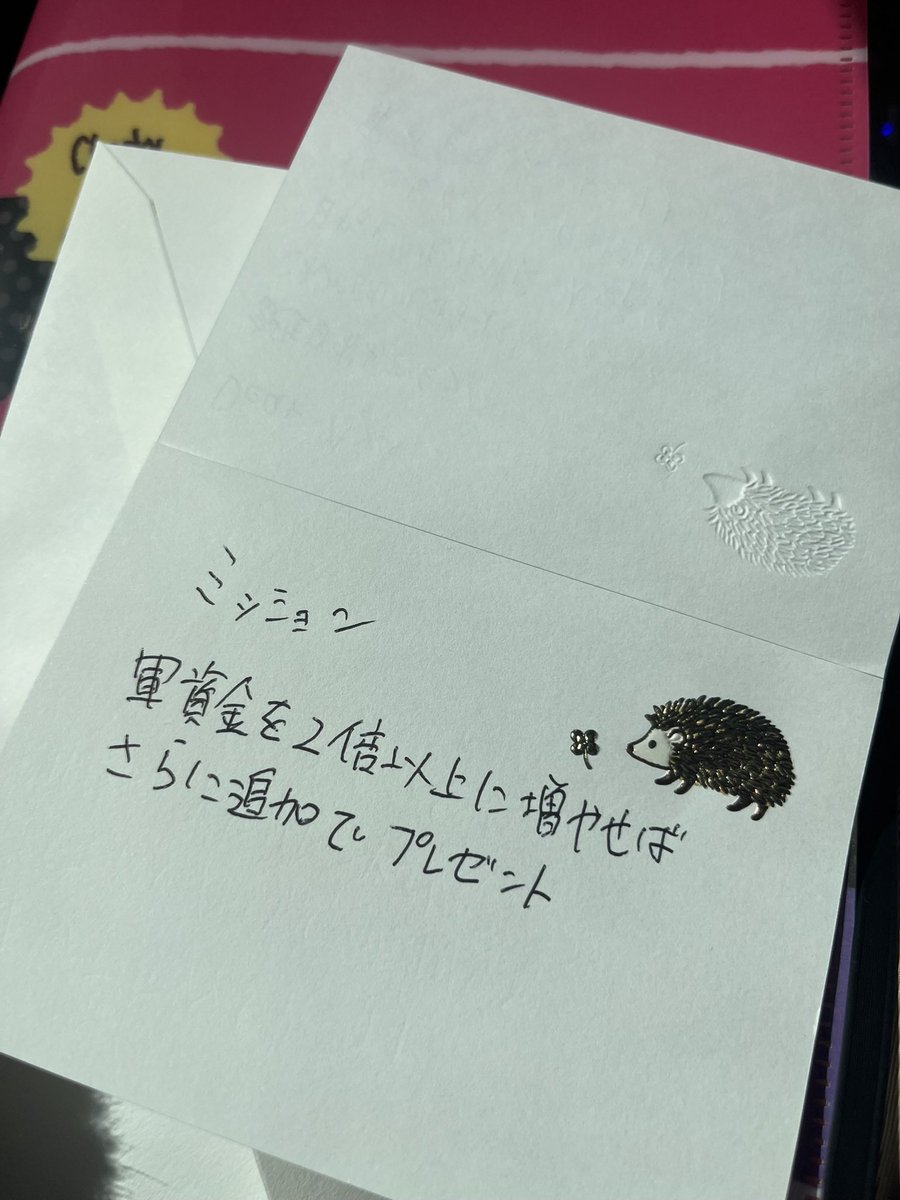 ミッション
軍資金を2倍以上に増やせば
さらに追加でプレゼント